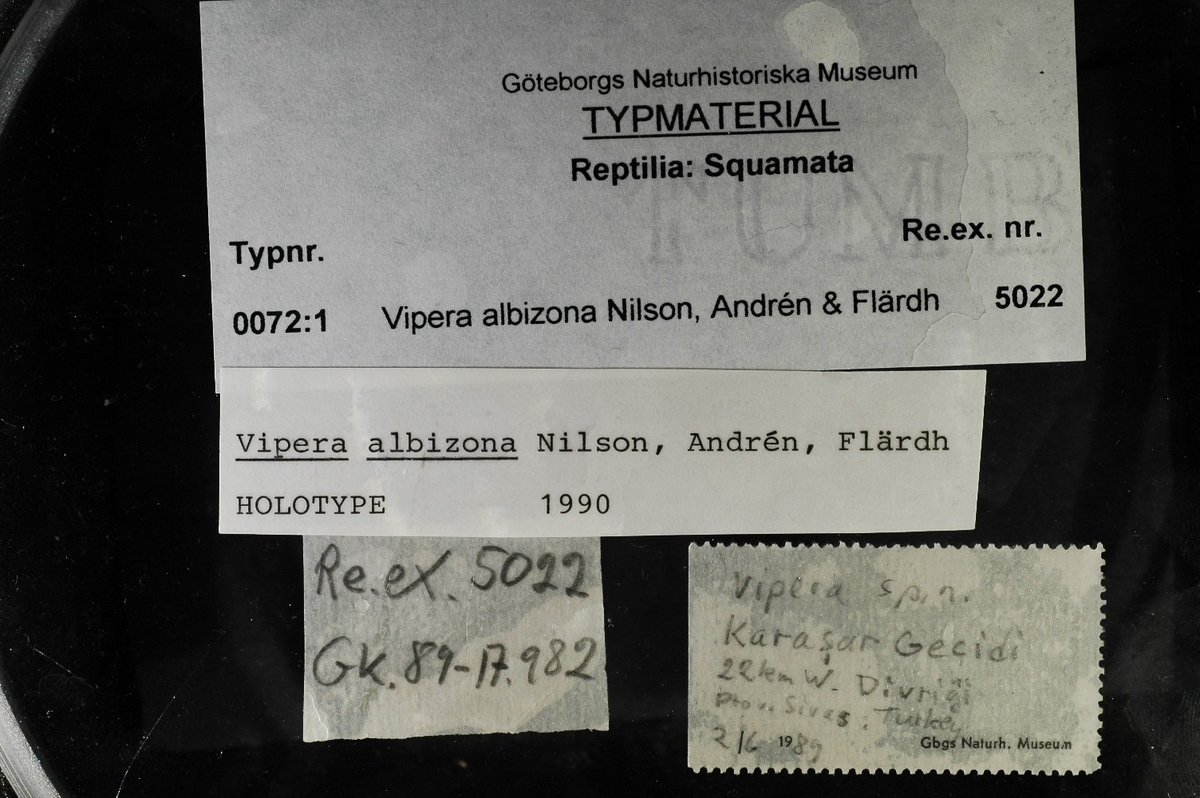 Göteborgs Naturhistoriska Museum
TYPMATERIAL
Reptilia: Squamata
Typnr. Re.ex. nr.
0072:1 Vipera albizona Nilson, Andrén & Flärdh 5022
Vipera albizona Nilson, Andrén, Flärdh
HOLOTYPE 1990
Re.ex. 5022
Gk. 89-17.982
Vipera sp.n.
Karaşar Geçidi
22km W. Divriği
prov. Sivas, Turkey
2/6 1989 Gbgs Naturh. Museum